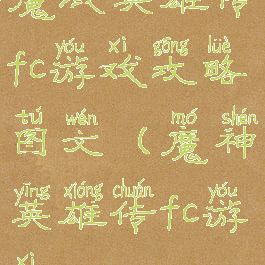 魔神英雄传
yóu xì gōng lüè
fc游戏攻略
tú wén mó shén
图文(魔神
yīng xióng chuán yóu
英雄传fc游
xì